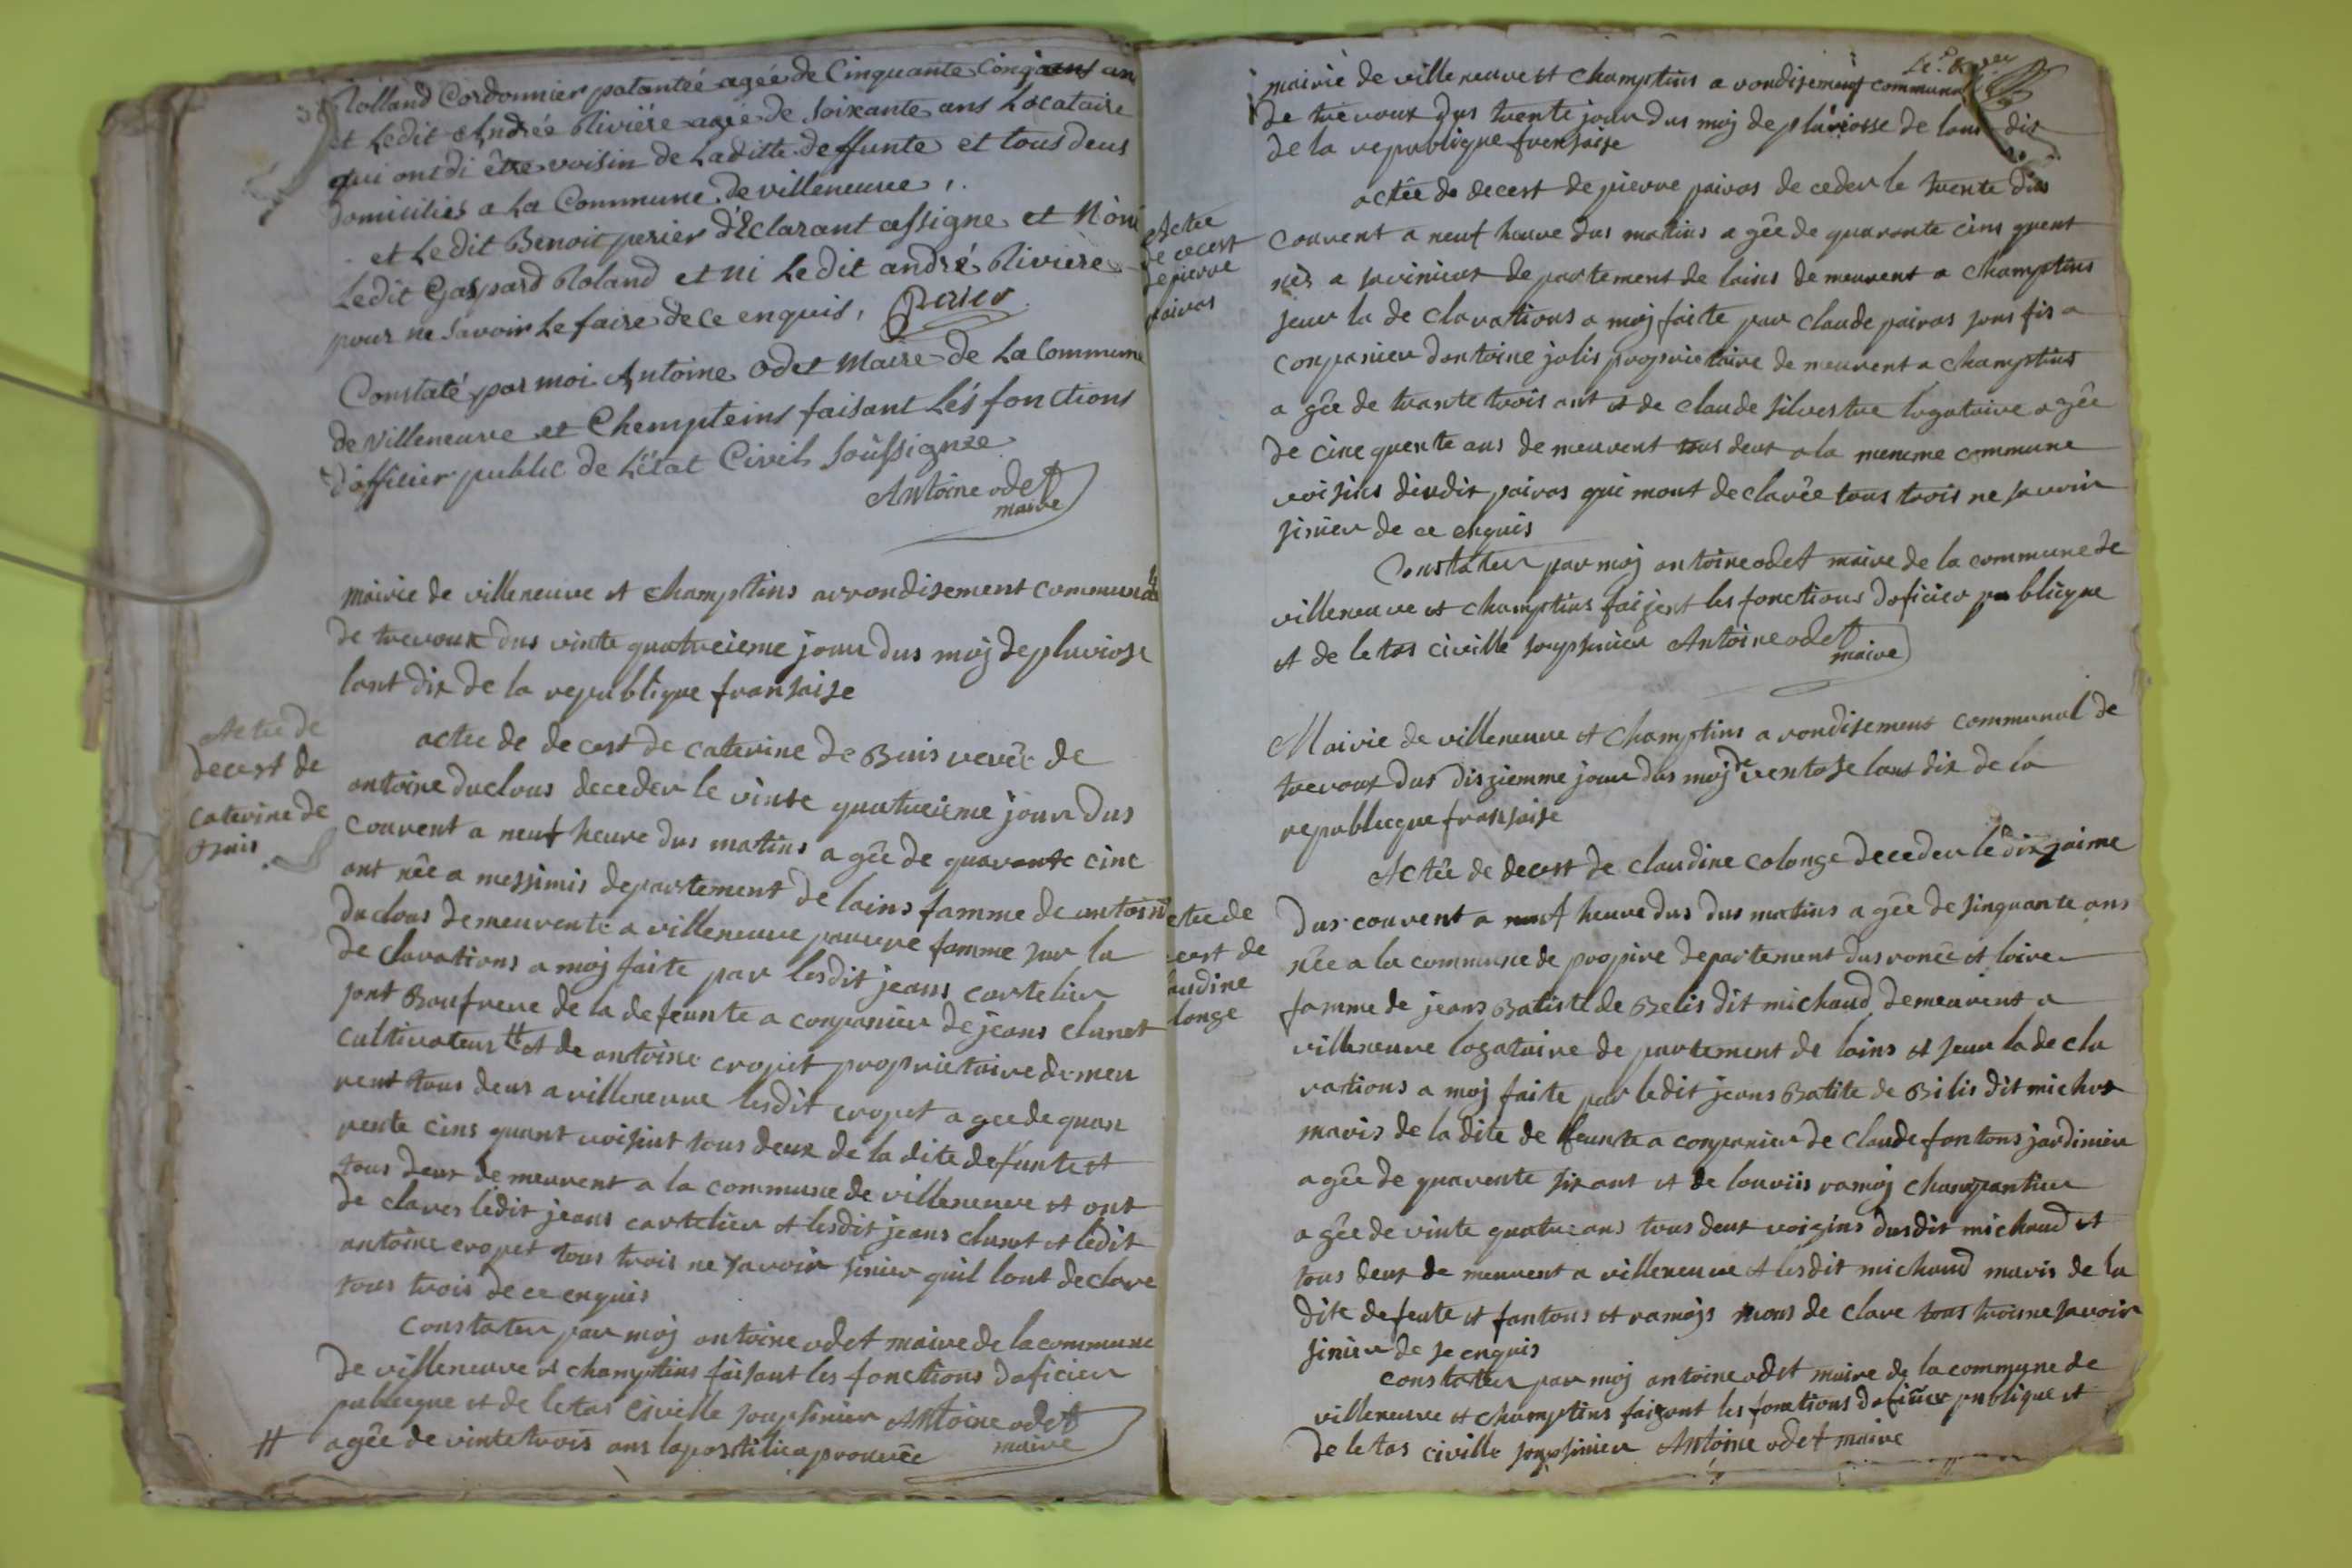 Rolland Cordonnier patantée agée de Cinquante Cinq ans
et Ledit Andrée Riviére agée de Soixante ans Locataire
qui ont di être voisin de Laditte deffunte et tous deus
domicilies a La Commune de villeneuve,
et Ledit Benoit perier déClarant assigne et Non
Ledit Gaspard Roland et ni Ledit andré Riviere
pour ne Savoir Le faire de ce enquis, Perier
Constaté par moi Antoine Odet Maire de La Commune
de Villeneuve et Chempteins faisant Lés fonctions
d'officier public de L'état Civil Soussignze
Antoine odet
maire
mairie de villeneuve et champtins arrondisement communal
de trevoux dus vinte quatreieme jour dus moj de pluviose
lant dix de la republique fransaise
Actee de
decest de
caterine de
Buis
actee de decest de caterine de Buis vevée de
antoine duclous deceder le vinte quatreieme jour dus
courent a neuf heure dus matins a gée de quarante cinc
ant née a messimis departement de lains famme de antoine
duclous demeurente a villeneuve pauvre famme sur la
de clarations a moj faite par lesdit jeans cartelier
sont Baufrere de la defeunte a conpanier de jeans clunet
cultivateur # et de antoine cropet proprietaire demeu
rent tous deus a villeneuve lesdit cropet a gee de quar
rente cins quant voisint tous deux de la dite defunte et
tous deux de meurent a la commune de villeneuve et ont
de clares ledit jeans cartelier et lesdit jeans clunet et ledit
antoine cropet tous trois ne savoir sinier quil lont declare
tous trois de ce enquis
constater par moj antoine odet maire de la commune
de villeneuve et champtins faisant les fonctions daficier
publicque et de letas civille soupsinier Antoine odet
maire
# agée de vinte trois ans lapostilie aprouvée
mairie de villeneuve et champtins a rondisement communal
de trevoux dus trente jour dus moj de pluviosse de lant dix
de la republique fransaise
Actee
de decest
de pierre
pairas
actée de decest de pierre pairas de ceder le trente dus
courent a neuf heure dus matins a gée de quarante cins quent
nés a savinieux de partement de lains de meurent a champtins
seur la de clarations a moj faite par claude pairas sons fis a
conpanier dantoine jolis proprietaire de meurent a champtins
a gée de trante trois ant et de claude silvestre logataire a gée
de cinc quente ans de meurent tous deux a la mememe commune
voisins dudit pairas qui mont declarée tous trois ne savoir
sinier de ce enquis
Constater par moj antoine odet maire de la commune de
villeneuve et champtins faisent les fonctions daficier publicque
et de letas civille soupsinier Antoine odet
maire
Mairie de villeneuve et champtins a rondisement communal de
trevoux dus disziemme jour dus moj de ventose lant dix de la
republicque fransaise
ctee de
cest de
audine
longe
Actée de decest de claudine colonge deceder le dixzaime
dus courent a neuf heure dus dus matins a gée de sinquante ans
née a la commune de propire departement dus ronée et loire
famme de jeans Batiste de Belis dit michaud demeurent a
villeneuve logataire de partement de lains et seur la de cla
rations a moj faite par ledit jeans Batite de Bilis dit michos
maris de la dite de feunte a conpanier de claude fantons jardinier
a gée de quarente six ant et de louviis ramoj champantier
a gée de vinte quatre ans tous deux voigins dusdit michaud et
tous deux de meurent a villeneuve et lesdit michaud maris de la
dite defente et fantons et ramojs mons de clare tous trois ne savoir
sinier de se enquis
constater par moj antoine odet maire de la commune de
villeneuve et champtins faizant les fonctions daficier publique et
de letas civille soupsinier Antoine odet maire